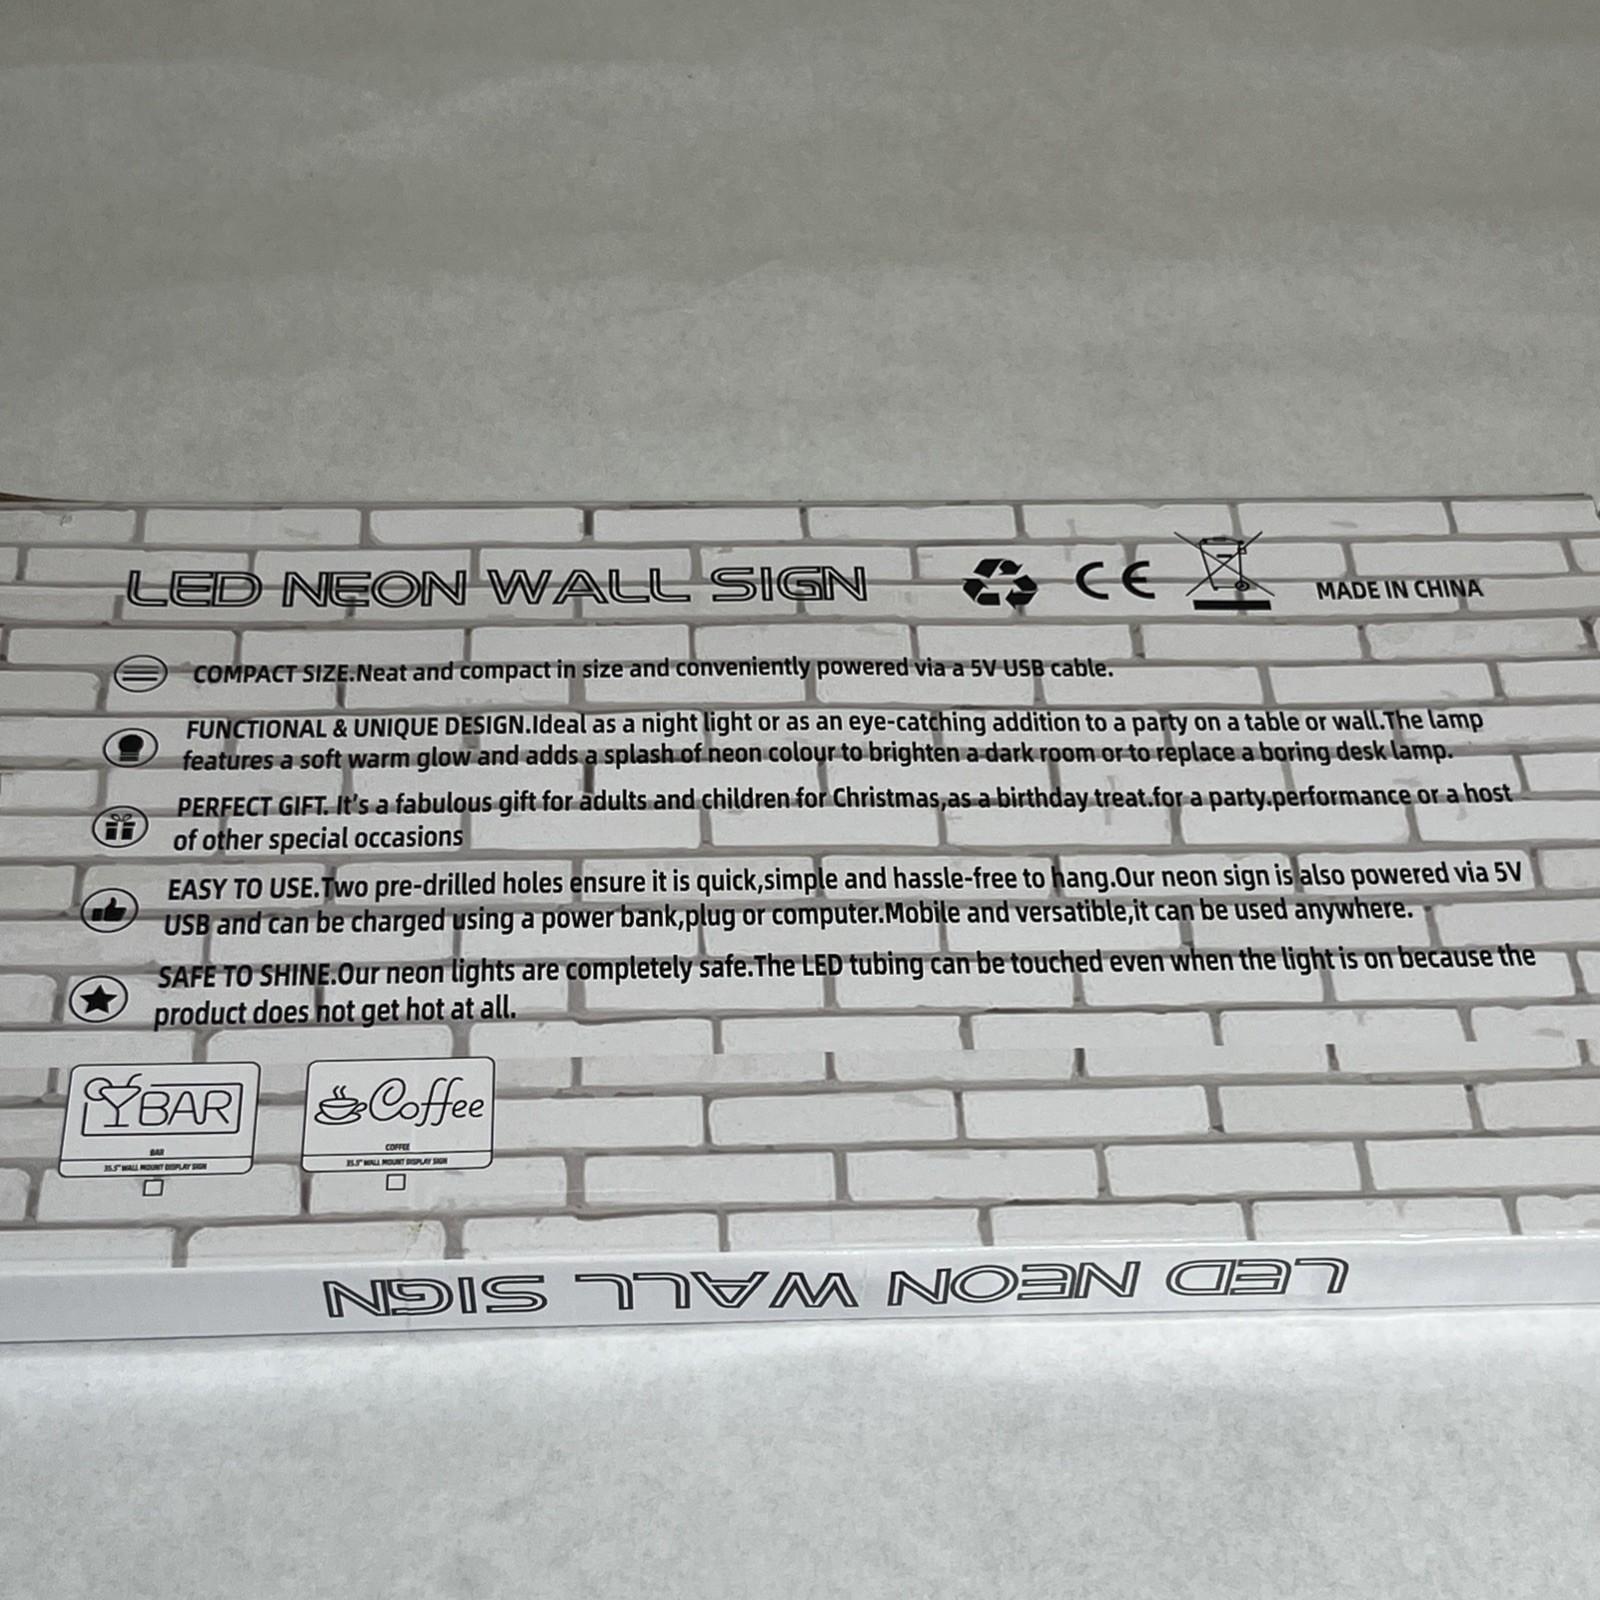 LED NEON WALL SIGN
CE
MADE IN CHINA
COMPACT SIZE.Neat and compact in size and conveniently powered via a 5V USB cable.
FUNCTIONAL & UNIQUE DESIGN.Ideal as a night light or as an eye-catching addition to a party on a table or wall.The lamp
features a soft warm glow and adds a splash of neon colour to brighten a dark room or to replace a boring desk lamp.
PERFECT GIFT. It's a fabulous gift for adults and children for Christmas,as a birthday treat.for a party.performance or a host
of other special occasions
EASY TO USE.Two pre-drilled holes ensure it is quick,simple and hassle-free to hang.Our neon sign is also powered via 5V
USB and can be charged using a power bank,plug or computer.Mobile and versatible,it can be used anywhere.
SAFE TO SHINE.Our neon lights are completely safe.The LED tubing can be touched even when the light is on because the
product does not get hot at all.
BAR
BAR
35.5" WALL MOUNT DISPLAY SIGN
Coffee
COFFEE
35.5" WALL MOUNT DISPLAY SIGN
LED NEON WALL SIGN